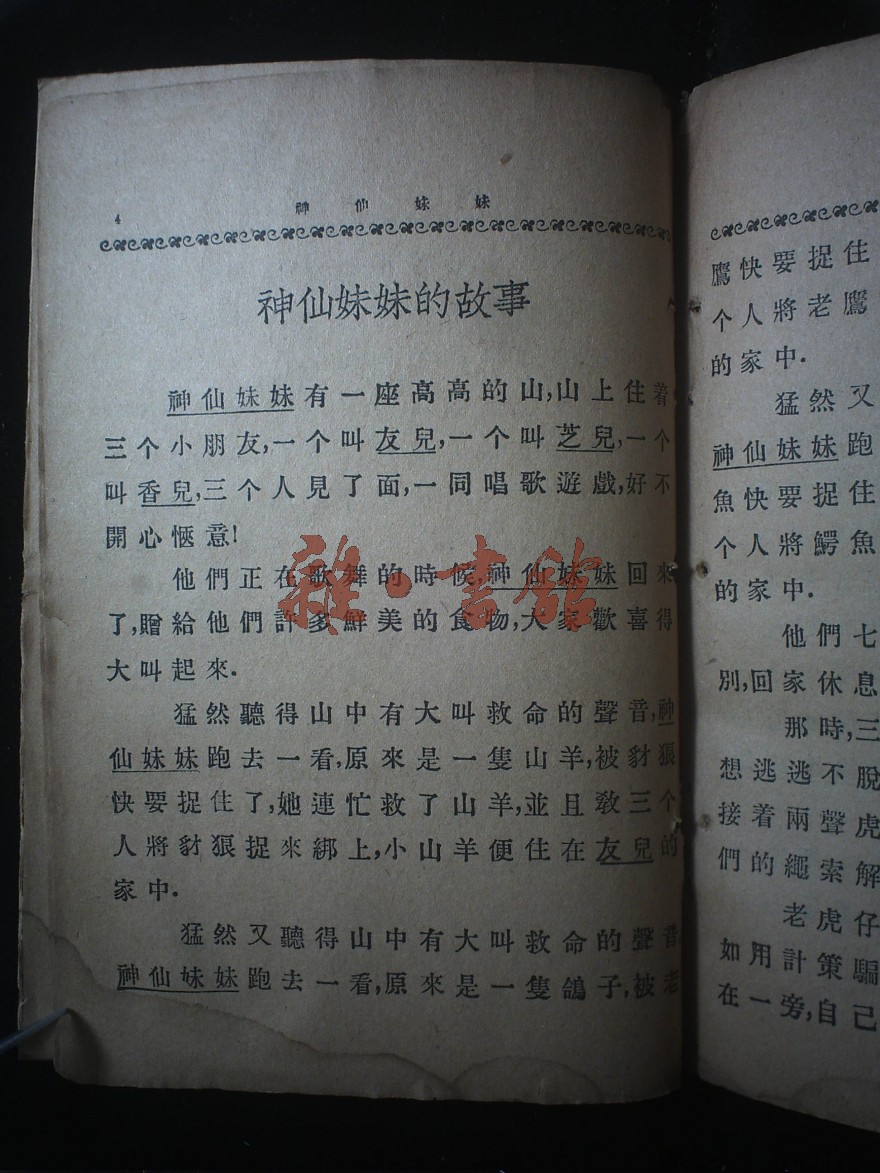 4 神仙妹妹
神仙妹妹的故事
神仙妹妹有一座高高的山,山上住着
三个小朋友,一个叫友兒,一个叫芝兒,一个
叫香兒,三个人見了面,一同唱歌遊戲,好不
開心愜意!
他們正在歌舞的時候,神仙妹妹回來
了,贈給他們許多鮮美的食物,大家歡喜得
大叫起來.
猛然聽得山中有大叫救命的聲音,神
仙妹妹跑去一看,原來是一隻山羊,被豺狼
快要捉住了,她連忙救了山羊,並且敎三个
人將豺狼捉來綁上,小山羊便住在友兒的
家中.
猛然又聽得山中有大叫救命的聲音,
神仙妹妹跑去一看,原來是一隻鴿子,被老
鷹快要捉住
个人將老鷹
的家中.
猛然又
神仙妹妹跑
魚快要捉住
个人將鰐魚
的家中.
他們七
別,回家休息
那時,三
想逃逃不脫
接着兩聲虎
們的繩索解
老虎仔
如用計策騙
在一旁,自己
雜·書館